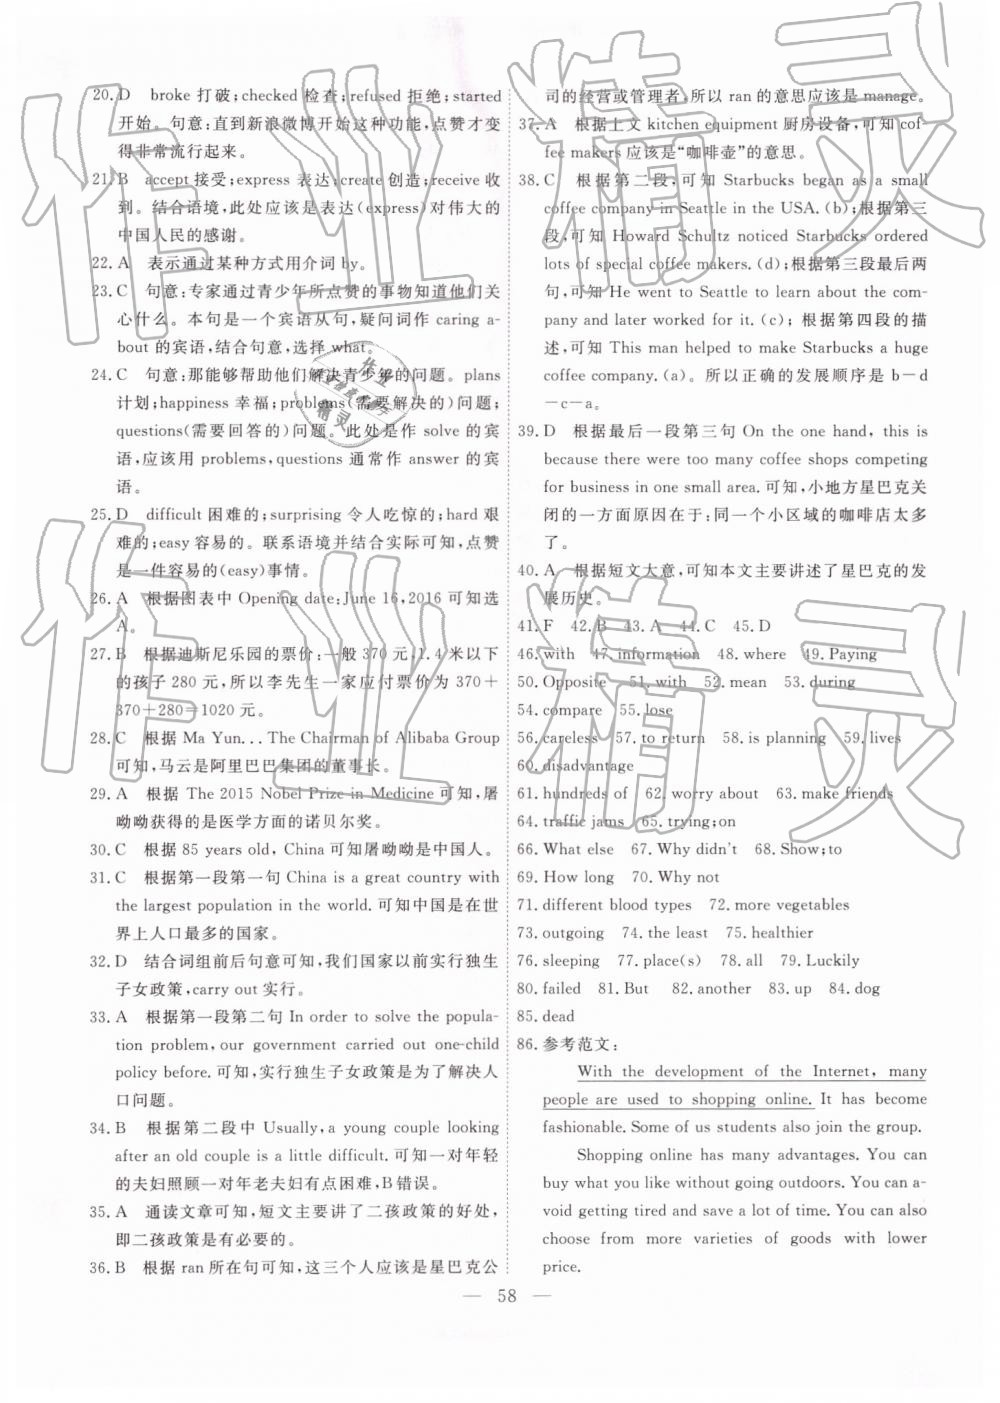 20. D　broke 打破;checked 检查;refused 拒绝;started
开始。句意:直到新浪微博开始这种功能,点赞才变
得非常流行起来。
21. B　accept 接受;express 表达;create 创造;receive 收
到。结合语境,此处应该是表达(express)对伟大的
中国人民的感谢。
22. A　表示通过某种方式用介词 by。
23. C　句意:专家通过青少年所点赞的事物知道他们关
心什么。本句是一个宾语从句,疑问词作 caring a-
bout 的宾语,结合句意,选择 what。
24. C　句意:那能够帮助他们解决青少年的问题。plans
计划;happiness 幸福;problems(需要解决的)问题;
questions(需要回答的)问题。此处是作 solve 的宾
语,应该用 problems,questions 通常作 answer 的宾
语。
25. D　difficult 困难的;surprising 令人吃惊的;hard 艰
难的;easy 容易的。联系语境并结合实际可知,点赞
是一件容易的(easy)事情。
26. A　根据图表中 Opening date:June 16,2016 可知选
A。
27. B　根据迪斯尼乐园的票价:一般 370 元,1.4 米以下
的孩子 280 元,所以李先生一家应付票价为 370＋
370＋280＝1020 元。
28. C　根据 Ma Yun... The Chairman of Alibaba Group
可知,马云是阿里巴巴集团的董事长。
29. A　根据 The 2015 Nobel Prize in Medicine 可知,屠
呦呦获得的是医学方面的诺贝尔奖。
30. C　根据 85 years old, China 可知屠呦呦是中国人。
31. C　根据第一段第一句 China is a great country with
the largest population in the world. 可知中国是在世
界上人口最多的国家。
32. D　结合词组前后句意可知,我们国家以前实行独生
子女政策,carry out 实行。
33. A　根据第一段第二句 In order to solve the popula-
tion problem, our government carried out one-child
policy before. 可知,实行独生子女政策是为了解决人
口问题。
34. B　根据第二段中 Usually, a young couple looking
after an old couple is a little difficult. 可知一对年轻
的夫妇照顾一对年老夫妇有点困难,B 错误。
35. A　通读文章可知,短文主要讲了二孩政策的好处,
即二孩政策是有必要的。
36. B　根据 ran 所在句可知,这三个人应该是星巴克公
司的经营或管理者,所以 ran 的意思应该是 manage。
37. A　根据上文 kitchen equipment 厨房设备,可知 cof-
fee makers 应该是“咖啡壶”的意思。
38. C　根据第二段,可知 Starbucks began as a small
coffee company in Seattle in the USA. (b);根据第三
段,可知 Howard Schultz noticed Starbucks ordered
lots of special coffee makers. (d);根据第三段最后两
句,可知 He went to Seattle to learn about the com-
pany and later worked for it. (c);根据第四段的描
述,可知 This man helped to make Starbucks a huge
coffee company. (a)。所以正确的发展顺序是 b－d
－c－a。
39. D　根据最后一段第三句 On the one hand, this is
because there were too many coffee shops competing
for business in one small area. 可知,小地方星巴克关
闭的一方面原因在于:同一个小区域的咖啡店太多
了。
40. A　根据短文大意,可知本文主要讲述了星巴克的发
展历史。
41. F　42. B　43. A　44. C　45. D
46. with　47. information　48. where　49. Paying
50. Opposite　51. with　52. mean　53. during
54. compare　55. lose
56. careless　57. to return　58. is planning　59. lives
60. disadvantage
61. hundreds of　62. worry about　63. make friends
64. traffic jams　65. trying;on
66. What else　67. Why didn't　68. Show;to
69. How long　70. Why not
71. different blood types　72. more vegetables
73. outgoing　74. the least　75. healthier
76. sleeping　77. place(s)　78. all　79. Luckily
80. failed　81. But　82. another　83. up　84. dog
85. dead
86. 参考范文:
With the development of the Internet, many
people are used to shopping online. It has become
fashionable. Some of us students also join the group.
Shopping online has many advantages. You can
buy what you like without going outdoors. You can a-
void getting tired and save a lot of time. You can also
choose from more varieties of goods with lower
price.
— 58 —
作业精灵
作业精灵